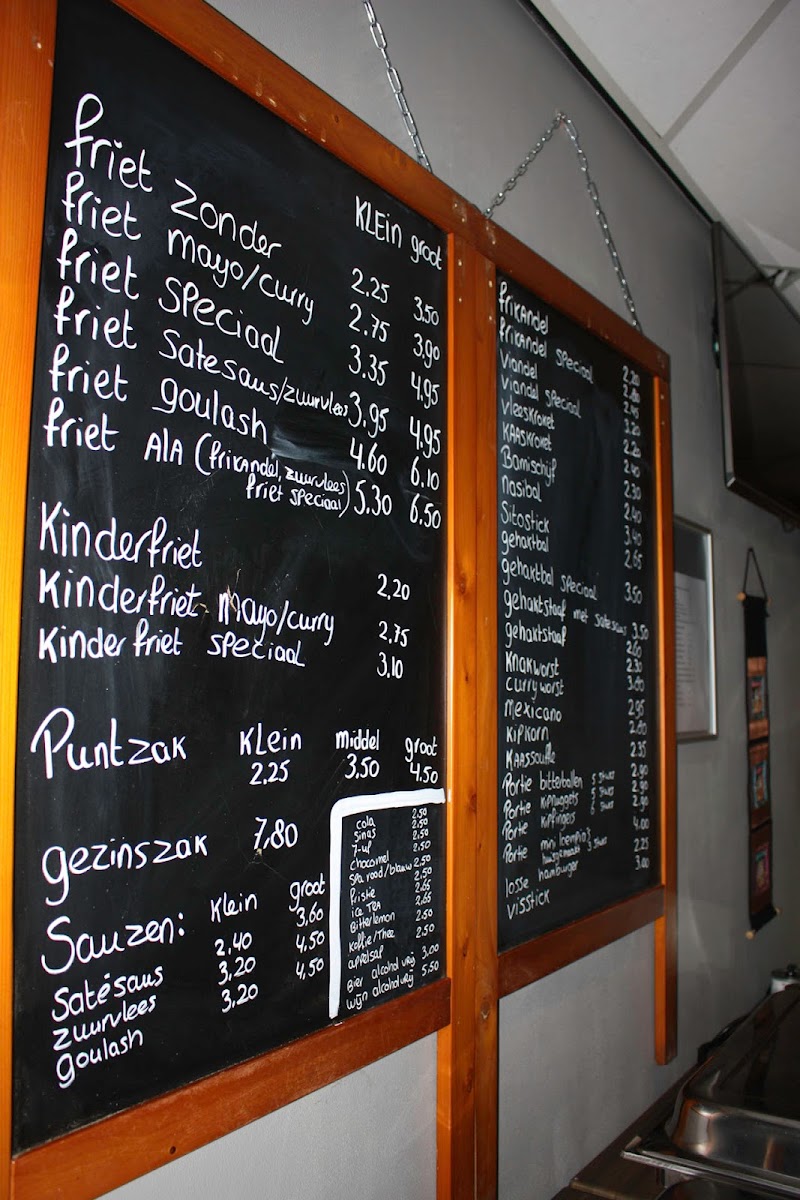 KLEIN groot
friet zonder 2.25 3.50
friet mayo/curry 2.75 3.90
friet speciaal 3.35 4.95
friet satesaus/zuurvlees 3.95 4.95
friet goulash 4.60 6.10
friet AlA (frikandel, zuurvlees 5.30 6.50
friet speciaal)
Kinderfriet 2,20
Kinderfriet mayo/curry 2,75
Kinderfriet speciaal 3,10
Puntzak Klein middel groot
2,25 3,50 4,50
gezinszak 7,80
Sauzen: Klein groot
Satésaus 2.40 3,60
zuurvlees 3,20 4,50
goulash 3,20 4,50
cola 2.50
Sinas 2.50
7-up 2.50
chocomel 2.50
Spa rood/blauw 2.50
fristie 2.50
ice TEA 2.65
Bitterlemon 2.65
Koffie/Thee 2.50
appelsap 2.50
Bier alcohol vrij 3,00
Wijn alcohol vrij 5,50
frikandel 2,20
frikandel speciaal 2.80
Viandel 2.45
Viandel speciaal 3.20
Vleeskroket 2.20
KAASKroket 2.40
Bamischijf 2.30
nasibal 2.40
Sitostick 3.40
gehaktbal 2.65
gehaktbal speciaal 3.50
gehaktstaaf met satesaus 3.50
gehaktstaaf 2.60
Knakworst 2.30
Curryworst 3.00
mexicano 2.95
Kipkorn
KAASSouffle 2.35
Portie bitterballen 5 stuks 2.90
Portie Kipnuggets 5 stuks 2.90
Portie Kipfingers 5 stuks 2.90
Portie mini loempia's 4.00
losse hamburger 2.25
visstick 3.00